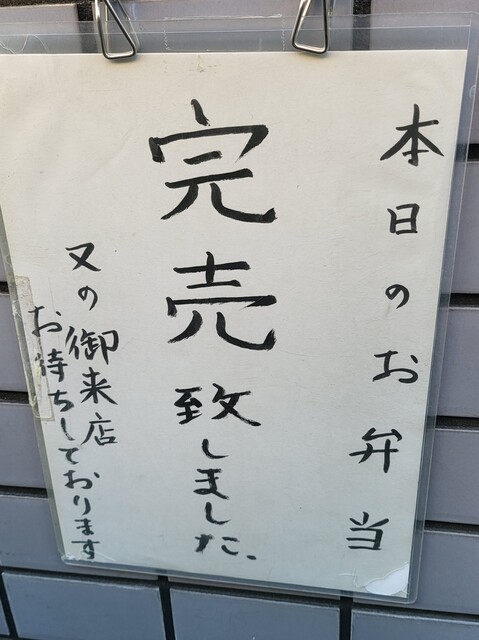 本日のお弁当
完売致しました、
又の御来店
お待ちしております